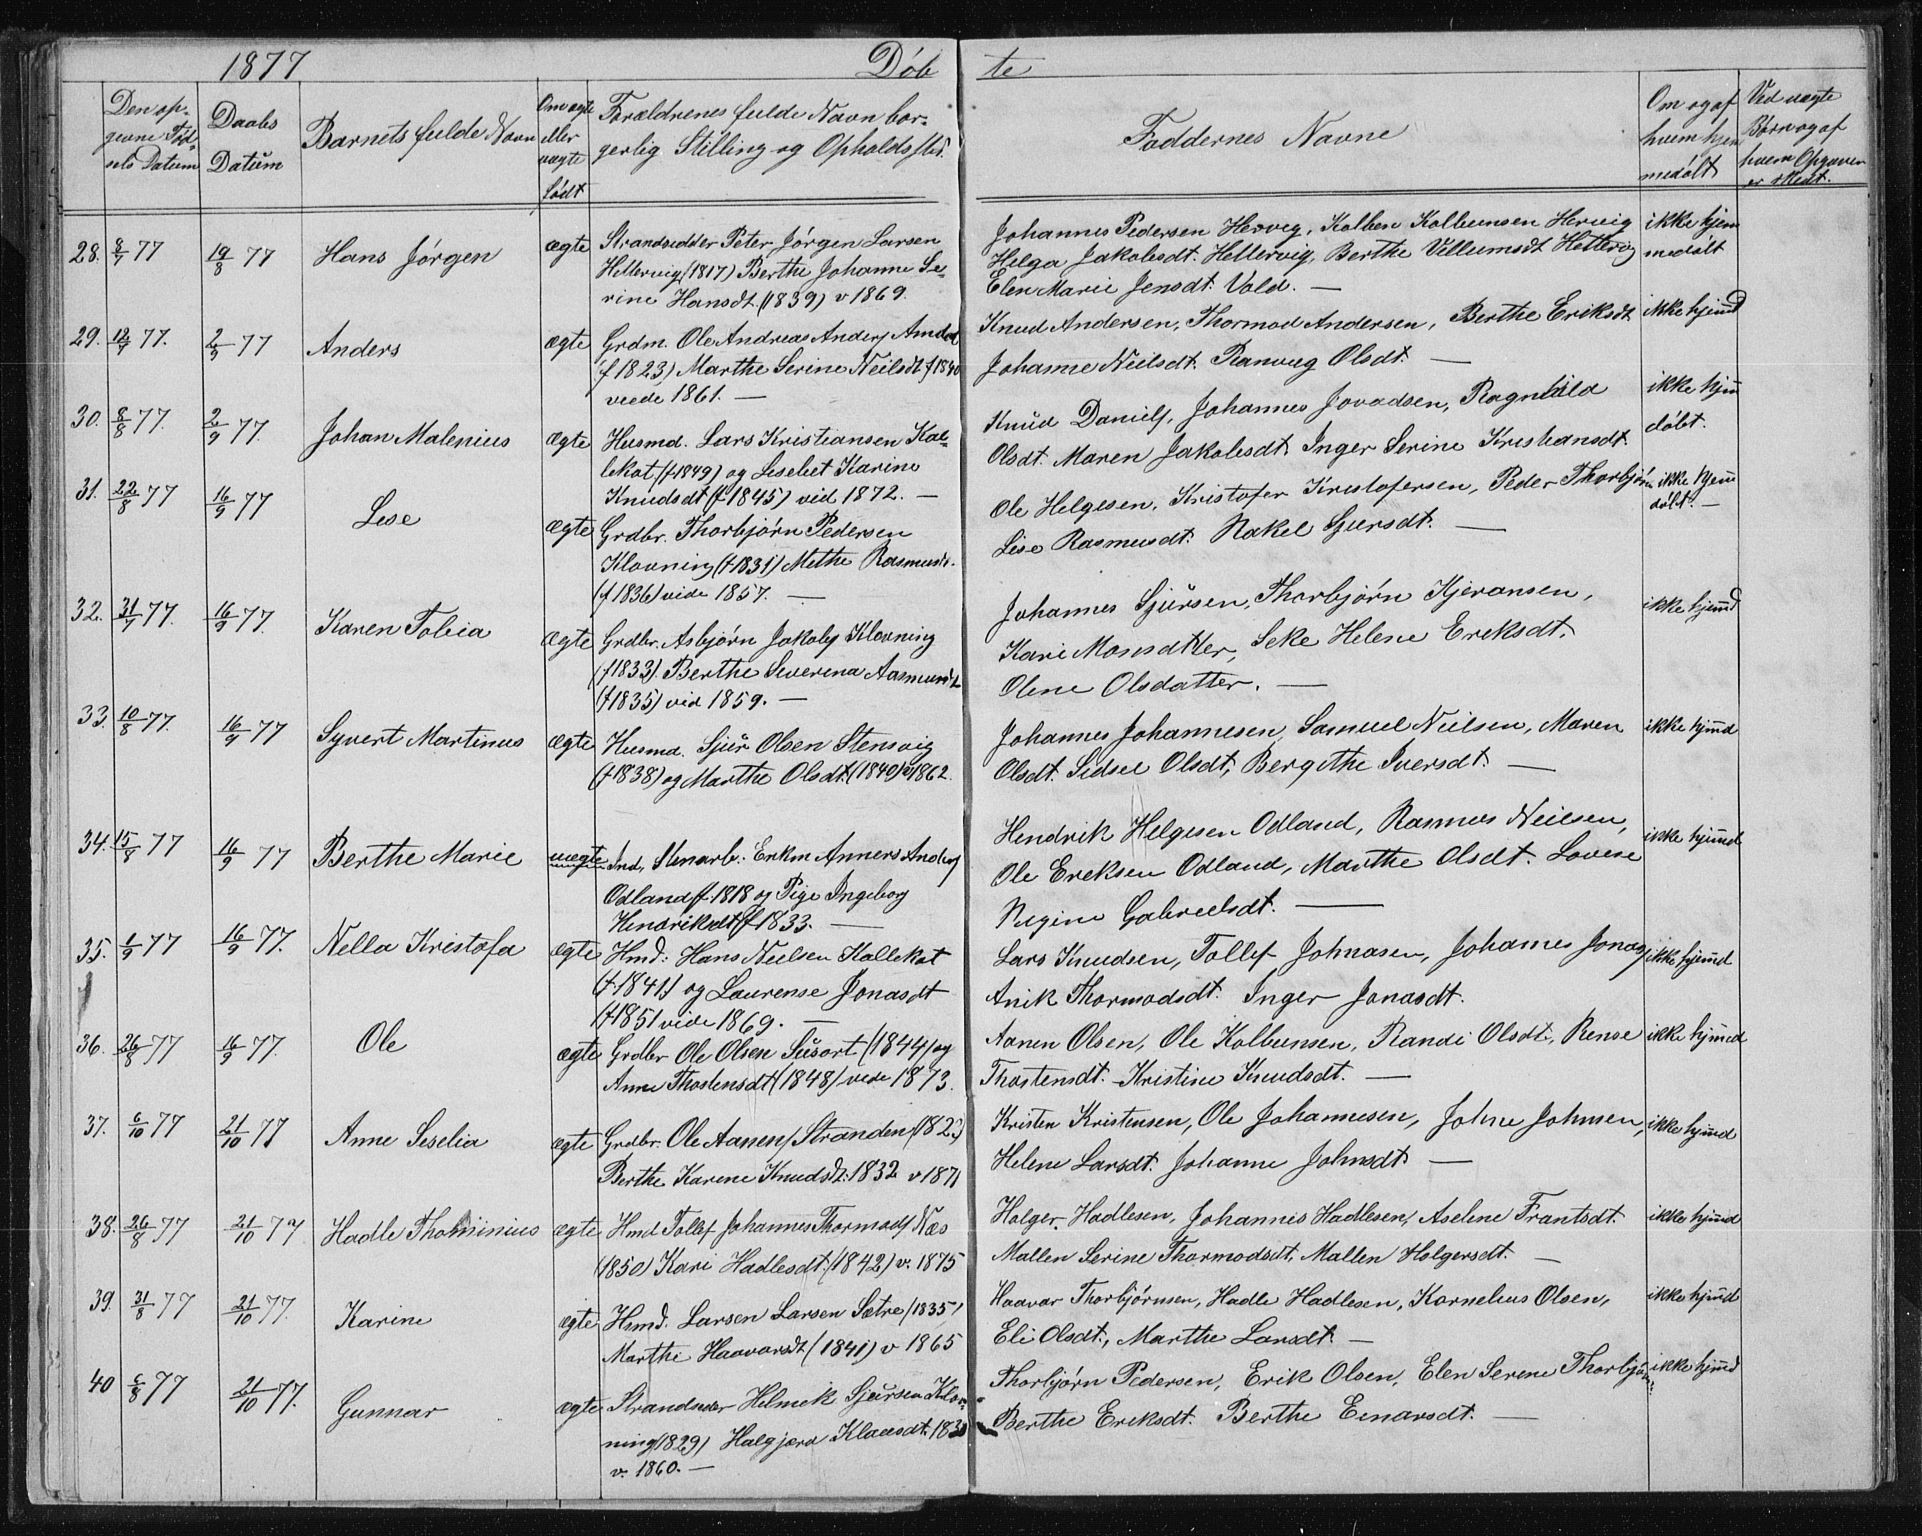 1877 Döb te
Den op-
gevne Föd-
sels Datum
Daabs
Datum
Barnets fulde Navn
Om ægte
eller
uægte
födt
Forældrenes fulde Navn bor-
gerlig Stilling og Opholdssted.
Faddernes Navne
Om og af
hvem hjem
medöbt
Ved uægte
Börn og af
hvem Opgaven
er skedt.
28. 8/7 77 19/8 77 Hans Jörgen ægte Strandsidder Peter Jörgen Larsen
Hettervig (1817) Berthe Johanne Se-
rine Hansdt. (1839) v 1869.
Johannes Pedersen Hervig, Kolben Kolbensen Hervig
Helga Jakobsdt. Hettervig, Berthe Villumsdt Hettervig
Elen Marie Jensdt. Vold. —
ikke hjem
medöbt
29. 12/7 77. 2/9 77 Anders ægte Grdm. Ole Andreas Anders Amdal
(f 1823) Marthe Serine Neilsdt. f 1840
viede 1861. —
Knud Andersen, Thormod Andersen, Berthe Eriksdt
Johanne Neilsdt. Ranveig Olsdt. —
ikke hjemd
30. 8/8 77. 2/9 77. Johan Malenius ægte Husmd. Lars Kristiansen Kal-
lekat (f 1849) og Lesebet Karine
Knudsdt (f 1845) vid 1872. —
Knud Daniels, Johannes Jovadsen, Ragnhild
Olsdt. Maren Jakobsdt. Inger Serine Kristiansdt.
ikke hjem
döbt.
31. 22/8 77 16/9 77 Lese ægte Grdbr. Thorbjörn Pedersen
Klovning (f 1831) Methe Rasmusdt.
(f 1836) vide 1857. —
Ole Helgesen, Kristofer Kristofersen, Peder Thorbjörn
Lise Rasmusdt. Rakel Sjursdt. —
ikke hjem
döbt. —
32. 31/7 77. 16/9 77. Karen Tobia ægte Grdbr. Asbjörn Jakobs Klovning
(f 1833). Berthe Severina Aasmundt
(f 1835) vid 1859. —
Johannes Sjursen, Thorbjörn Kjeransen,
Kari Monsdtter, Seke Helene Ereksdt.
Olene Olsdatter. —
ikke hjemd
33. 10/8 77. 16/9 77 Syvert Martinus ægte Husmd. Sjur Olsen Stensvig
(f 1838) og Marthe Olsdt. (1840) v 1862.
Johannes Johannesen, Samuel Nielsen, Maren
Olsdt. Sidsel Olsdt, Bergithe Iversdt. —
ikke hjemd
34. 15/8 77 16/9 77 Berthe Marie uægte Ind. Stenarb. Enkm Anners Anders
Odland f. 1818 og Pige Ingeborg
Hendriksdt f 1833. —
Hendrik Helgesen Odland, Rasmus Neilsen,
Ole Ereksen Odland, Marthe Olsdt. Lovise
Regine Gabrielsdt. —
ikke hjemd
35. 1/9 77 16/9 77. Nella Kristofa ægte Hmd. Hans Neilsen Kallekat
(f. 1841) og Laurense Jonasdt
(f 1851 vide 1869. —
Lars Knudsen, Tollef Johnasen, Johannes Jonas
Anik Thormodsdt. Inger Jonasdt.
ikke hjemd
36. 26/8 77 16/9 77. Ole ægte Grdbr Ole Olsen Susort (1844) og
Anne Thostensdt (1848) vide 1873.
Aanen Olsen, Ole Kolbensen, Randi Olsdt, Rense
Thostensdt. Kristine Knudsdt. —
ikke hjemed
37. 6/10 77 21/10 77 Anne Seselia ægte Grdbr. Ole Aanens Stranden (1823)
Berthe Karene Knudsdt. 1832 v 1871
Kristen Kristensen, Ole Johannesen, Johne Johnsen,
Helene Larsdt. Johanne Johnsdt —
ikke hjemd
38. 26/8 77 21/10 77 Hadle Thominius ægte Hmd Tollef Johannes Thormods Næs
(1850) Kari Hadlesdt. (1842) v. 1875
Holger Hadlesen, Johannes Hadlesen, Aselene Frantsdt.
Mallen Serine Thormodsdt, Mallen Holgersdt. —
ikke hjemd
39. 31/8 77 21/10 77. Karine ægte Hmd. Larsen Larsen Sætre (1835)
Marthe Haavarsdt (1841) v 1865
Haavar Thorbjörnsen, Hadle Hadlesen, Kornelius Olsen,
Eli Olsdt., Marthe Larsdt. —
ikke hjemd
40 6/8 77 21/10 77. Gunnar ægte Strandseder Helmik Sjursen Klov-
ning (1829) Halgjerd Klausdt. 183
v. 1860. —
Thorbjörn Pedersen, Erik Olsen, Elen Serene Thorbjörn
Berthe Ereksdt. Berthe Einarsdt. —
ikke hjemd